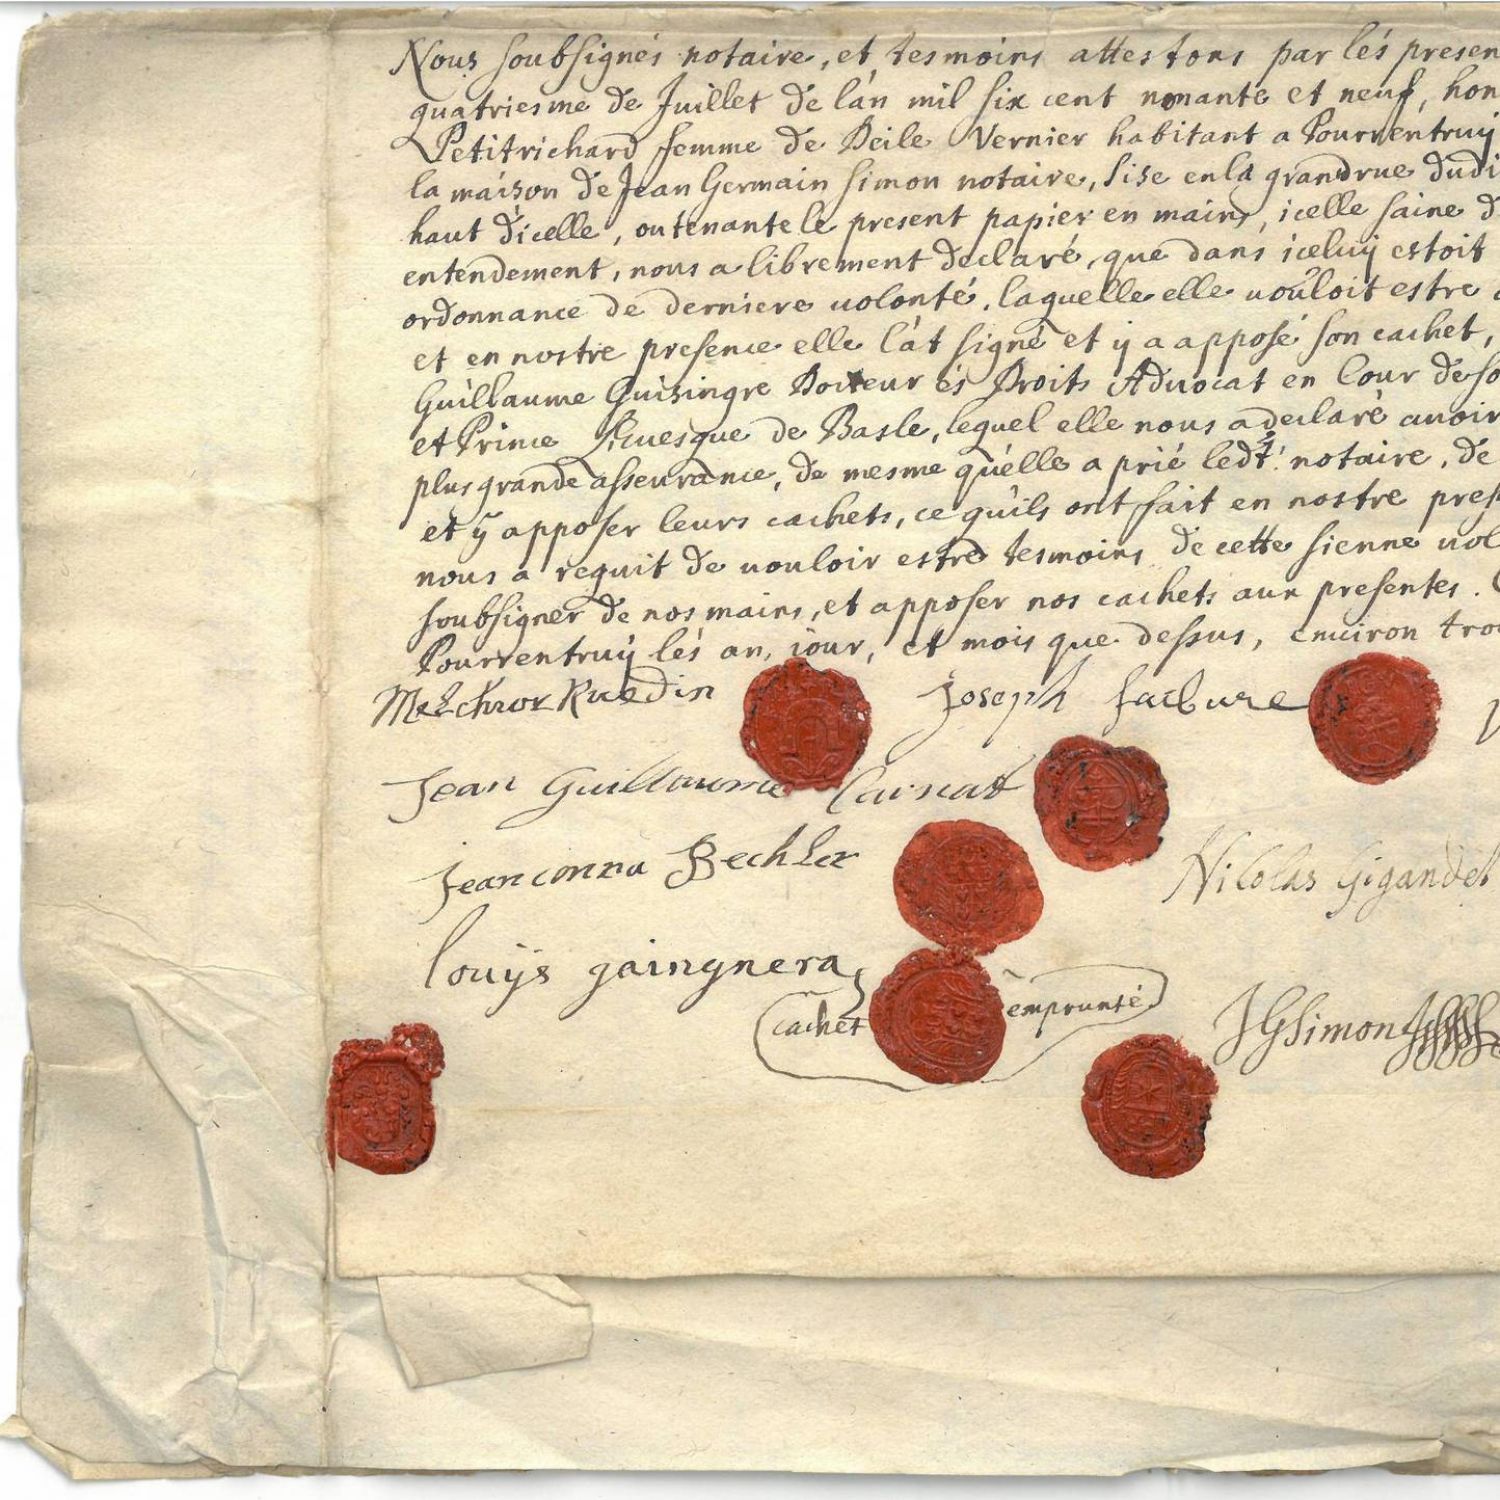 Nous soubsignés notaire, et tesmoins attestons par lés presen
quatriesme de Juillet de lán mil six cent nonante et neuf, hon
Petitrichard femme de Deile Vernier habitant a Pourrentruÿ
la maison de Jean Germain Simon notaire, sise en la grandrue dudi
haut dícelle, ou tenante le present papier en mains, icelle saine d
entendement, nous a librement declaré, que dans iceluÿ estoit
ordonnance de derniere volonté, laquelle elle uoûloit estre
et en nostre presence elle l'at signé et ÿ a apposé son cachet,
Guillaume Guisingre Docteur és Droits Aduocat en Cour de so
et Prince Euesque de Basle, lequel elle nous a declaré auoir
plus grande asseurance, de mesme qu'elle a prié ledt. notaire, de
et ÿ apposer leurs cachets, ce quils ont fait en nostre pres
nous a requit de uouloir estre tesmoins de cette sienne uol
soubsigner de nos mains, et apposer nos cachets aux presentes.
Pourrentruÿ lés an, iour, et mois que dessus, enuiron tro
Melchior Ruedin Joseph faibure
Jean Guillaume
Bechler Nicolas Gigandet
louÿs gaingnera
cachet emprunté
JGSimon